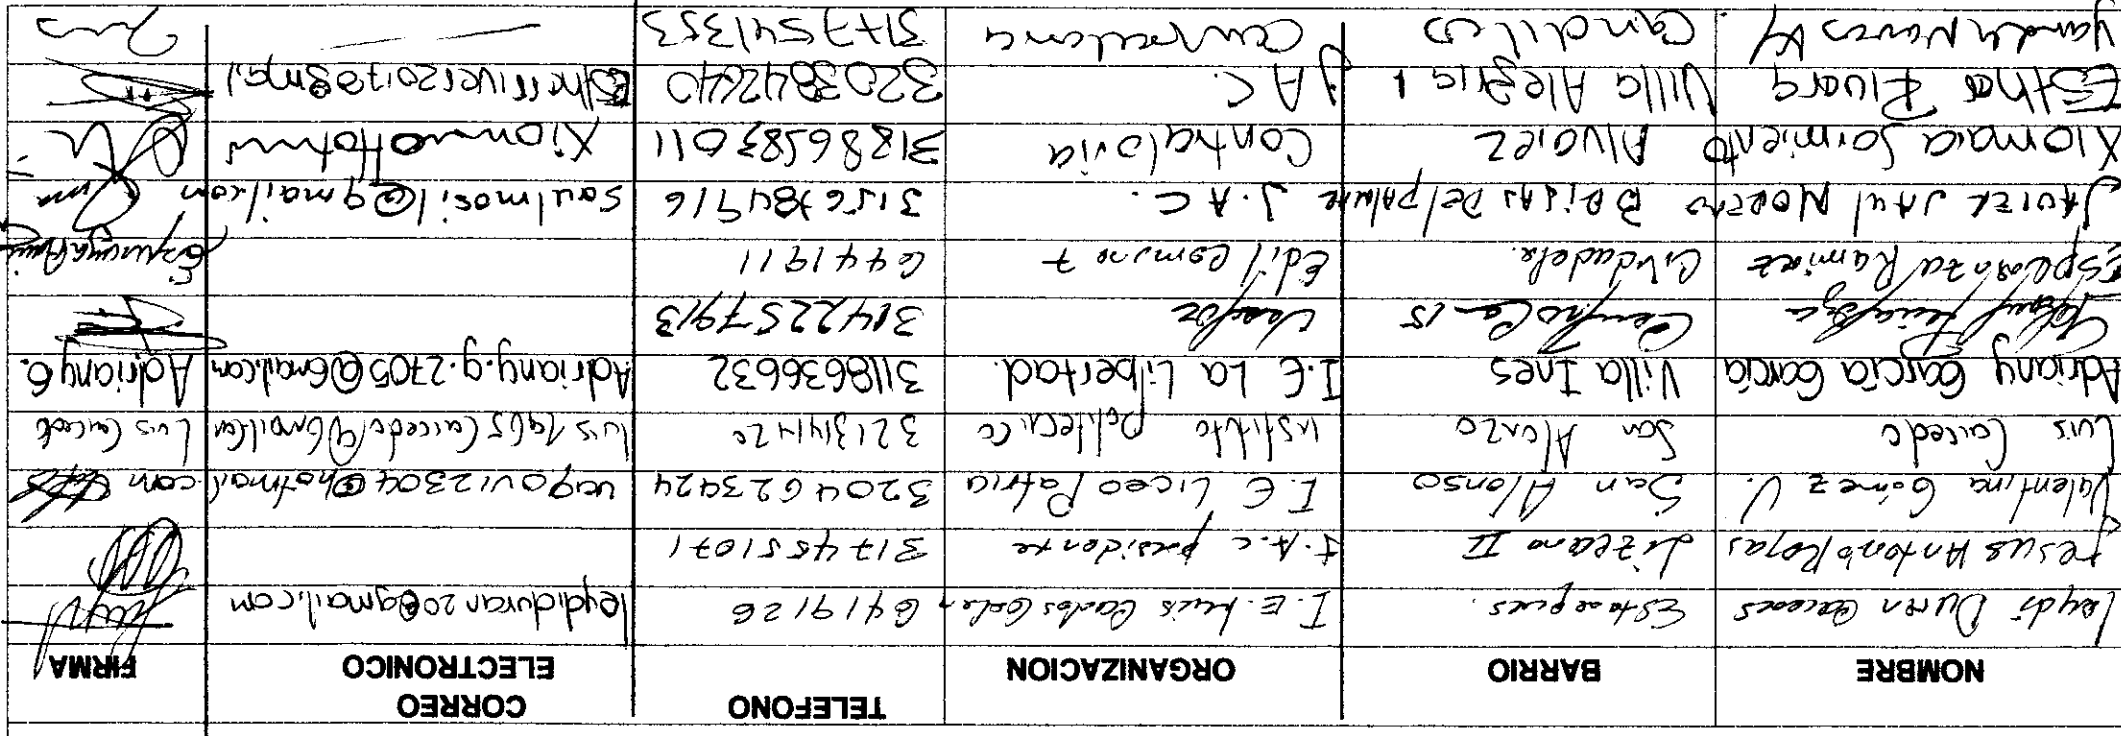 NOMBRE BARRIO ORGANIZACION TELEFONO CORREO ELECTRONICO FIRMA
Leydi Duran Estoraques. I.E. Luis Carlos Galan 6419126 leydiduran20@gmail.com
Jesus Antonio Rojas Lizcano II J.A.C presidente 3174551071
Valentina Gómez V. San Alonso I.E Liceo Patria 3204623424 vagovi2304@hotmail.com
Luis Caicedo San Alonzo instituto politecnico 321341420 luis1965Caicedo@Gmail.Com Luis Caicedo
Adriany García García Villa Ines I.E La Libertad. 3118636632 Adriany.g.2705@Gmail.com Adriany G.
Centro Ca 15 Veedor 3142257913
Esperanza Ramirez Ciudadela. Edil Comuna 7 6441911 Esperanza
JAVIER SAUL MORENO BRISAS Del palmar J.A.C. 3156784916 saulmosil@gmail.com
Xiomara Sarmiento Alvarez Contraloria 31886583011
Esther Rivera Villa Alegria 1 J A C. 3203842640 Estherriver2017@gmail
Candiles 3177541353